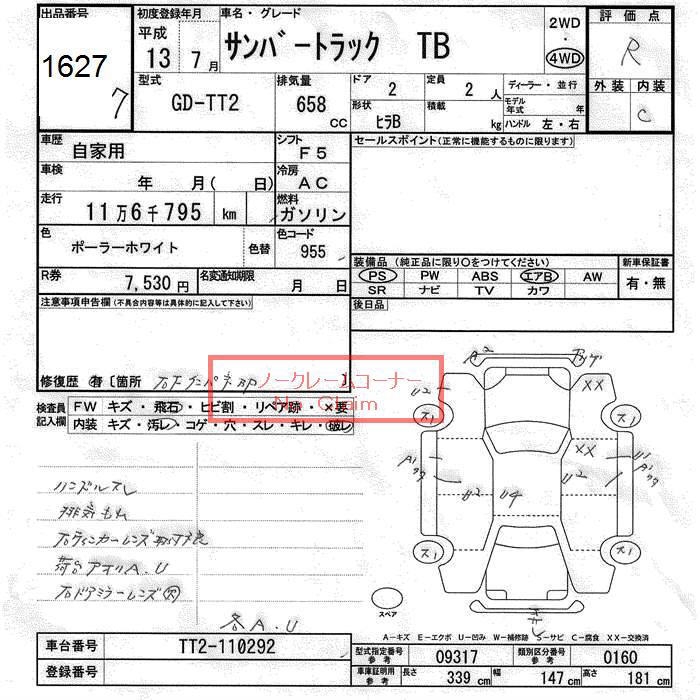 出品番号
1627
7
初度登録年月
平成
13 年 7 月
車名・グレード
サンバートラック TB
2WD
・
4WD
評価点
R
外装 内装
C
型式
GD-TT2
排気量
658
CC
ドア
2
定員
2 人
形状
ヒラB
積載
kg
ディーラー・並行
モデル年式 年
ハンドル 左・右
車歴
自家用
シフト
F5
車検
年 月( 日)
冷房
AC
走行
11万6千795 km
燃料
ガソリン
色
ポーラーホワイト
色替
色コード
955
R券
7,530 円
名変通知期限
月 日
セールスポイント(正常に機能するものに限ります)
装備品(純正品に限り○をつけてください)
新車保証書
PS PW ABS エアB AW
SR ナビ TV カワ
有・無
後日品
注意事項申告欄(不具合内容等は具体的に記入して下さい)
修復歴 有〔箇所
ノークレームコーナー
No Claim
検査員記入欄
FW キズ・飛石・ヒビ割・リペア跡・×要
内装 キズ・汚レ・コゲ・穴・スレ・キレ・破レ
ハンドルスレ
排気もれ
右ウィンカーレンズ
荷台アオリA.U
右ドアミラーレンズ
各A.U
A2
U2
XX
ス1
ス1
A1
U2
U4
XX
U2
U1
A1
ス1
ス1
スペア
A-キズ E-エクボ U-凹み W-補修跡 S-サビ C-腐食 XX-交換済
車台番号
TT2-110292
登録番号
型式指定番号 参考
09317
類別区分番号 参考
0160
車庫証明用 参考
長さ 339 cm
幅 147 cm
高さ 181 cm